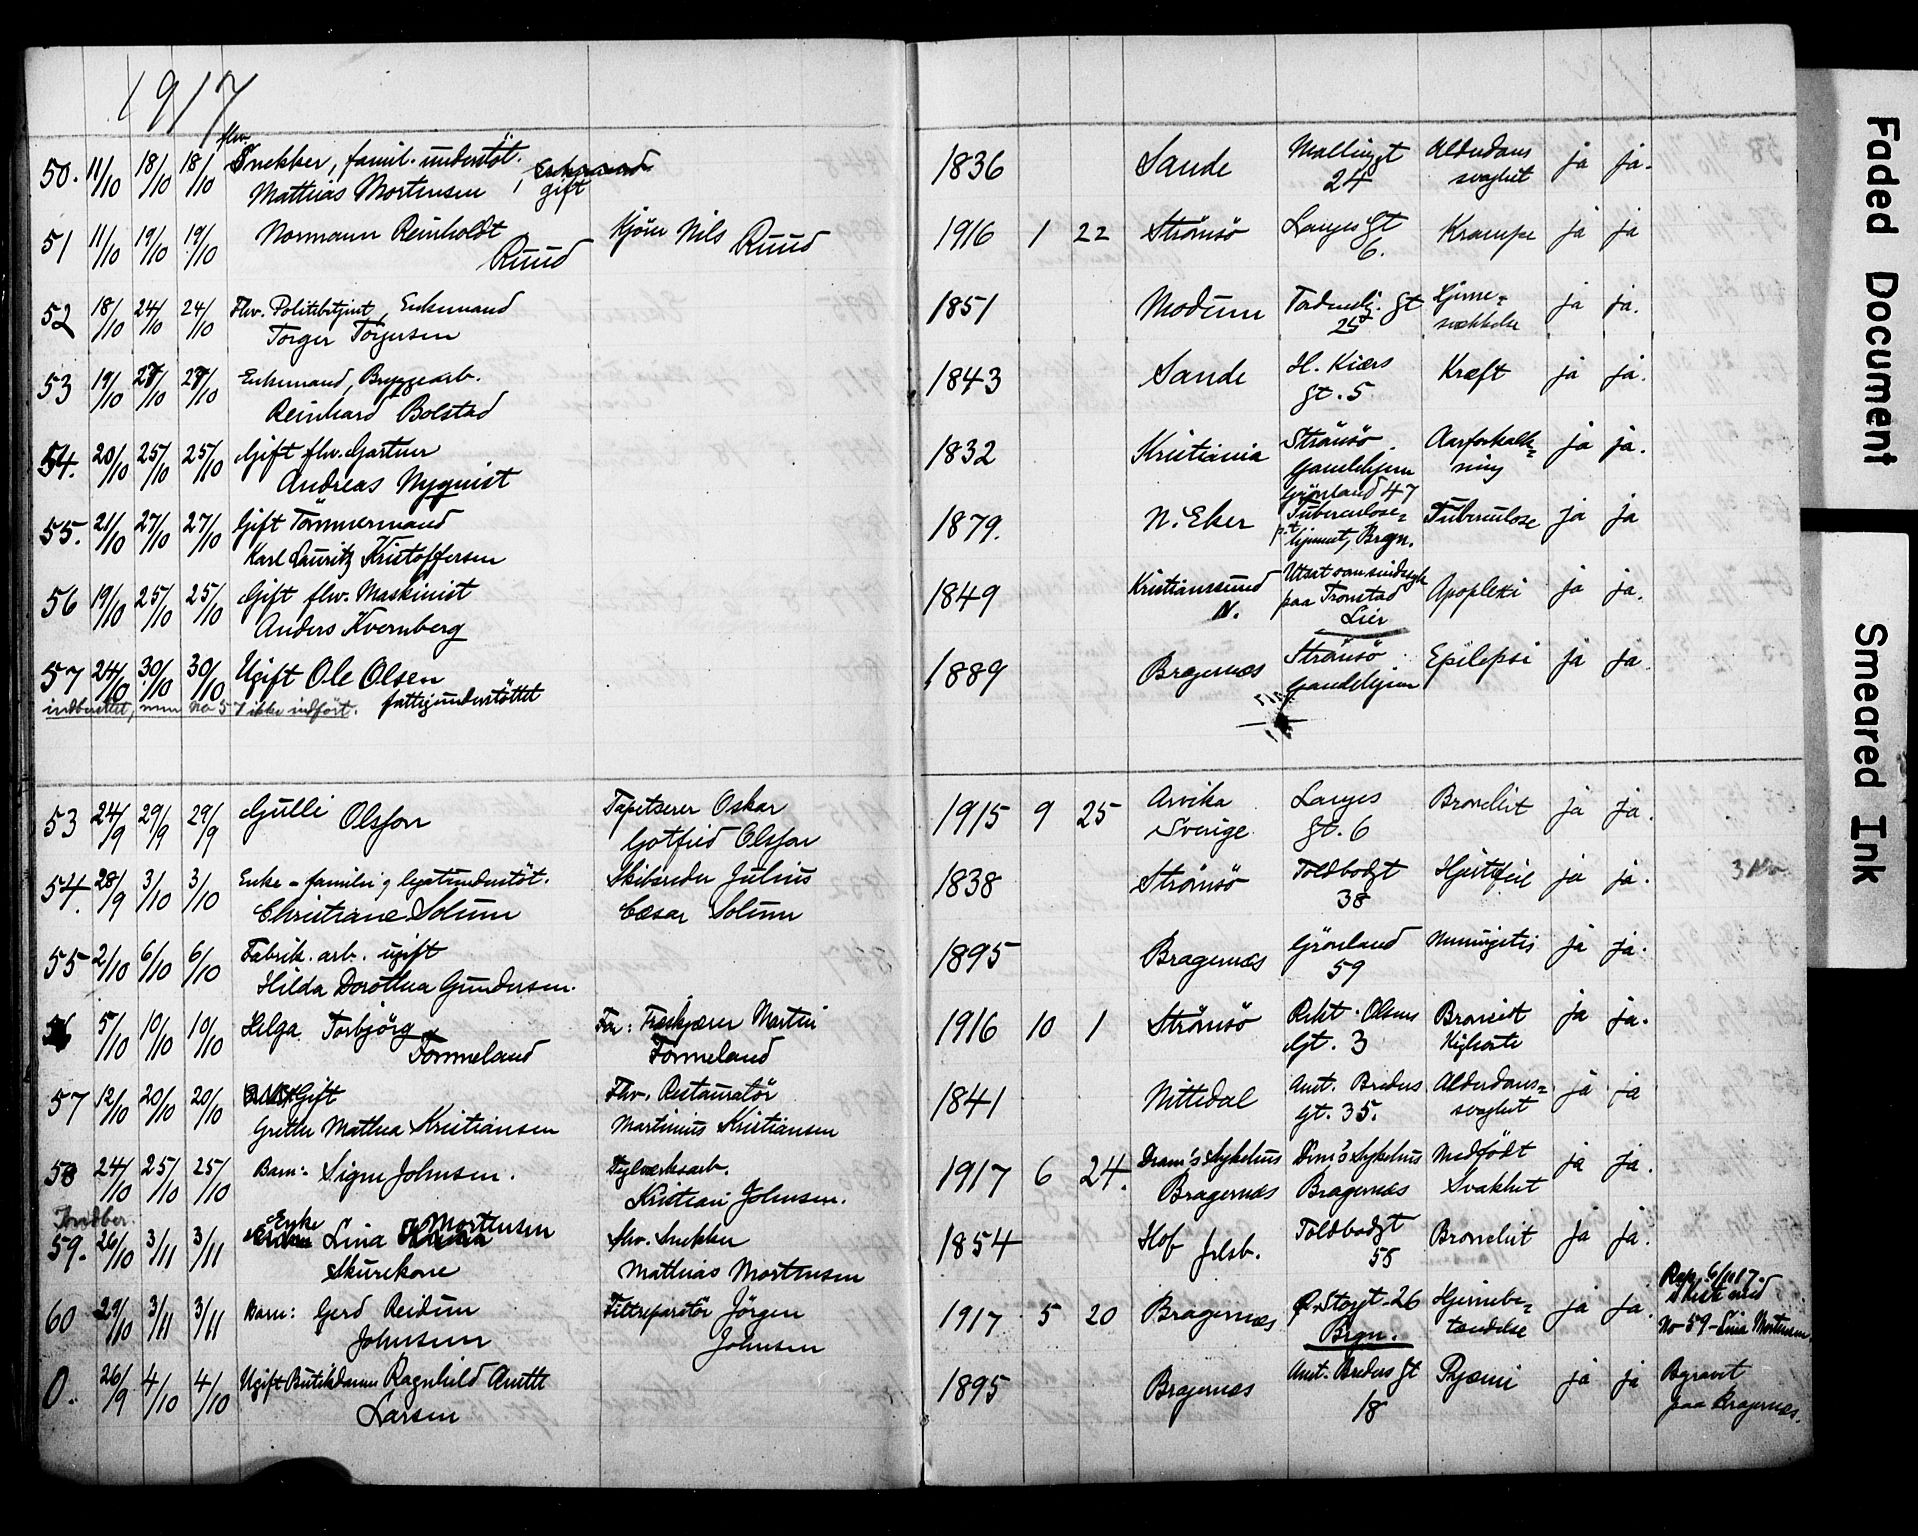 1917
50. 11/10 18/10 18/10 flw. Snekker, famil. understöt. Mattias Mortensen, gift 1836 Sande Mallingt 24 Alderdoms svaghet ja ja.
51 11/10 19/10 19/10 Normann Reinholdt Ruud Kjörer Nils Ruud 1916 1 22 Strömsö Langes Gt 6. Krampe ja ja
52 18/10 24/10 24/10 Flw. Politibetjent, Enkemand Torger Torgersen 1851 Modum Gt 25 Hjerne- svækkelse ja ja.
53 19/10 27/10 27/10 Enkemand, Bryggearb. Reinhard Bolstad 1843 Sande H. Kiærs Gt. 5 Kræft ja ja.
54. 20/10 25/10 25/10 Gift flw. Gartner Andreas Nyquist 1832 Kristiania Strömsö Gamlehjem Aarforkalk- ning ja ja.
55. 21/10 27/10 27/10 Gift Tömmermand Karl Lauritz Kristoffersen 1879. N. Eker Grönland 47 Tuberculose- hjemmet, Bragn. Tuberculose ja ja
56 19/10 25/10 25/10 Gift flw. Maskinist Anders Kvernberg 1849 Kristianssund N. Utsat som sindssyk paa Tronstad Lier Apopleksi ja ja.
57 24/10 30/10 30/10 Ugift Ole Olsen fattigunderstöttet 1889 Bragernæs Strömsö Gamlehjem Epilepsi ja ja
indberettet, men No 57 ikke indfört.
53 24/9 29/9 29/9 Gulli Olsson Tapetserer Oskar Gotfred Olsson 1915 9 25 Arvika Sverige Langes Gt. 6 Bronchit ja ja.
54. 28/9 3/10 3/10 Enke - familie og legatunderstöt. Christiane Solum Skibsreder Julius Cæsar Solum 1838 Strömsö Toldbodgt 38 Hjertefeil ja ja. 3 Kr.
55 2/10 6/10 6/10 Fabrik. arb. ugift Hilda Dorothea Gundersen. 1895 Bragernæs Grönland 59 Meningitis ja ja.
56 5/10 10/10 10/10 Helga Torbjörg Tormeland Far: Træskjærer Martin Tormeland 1916 10 1 Strömsö Rekt. Olsens Gt. 3 Bronchit Kighoste ja ja.
57 12/10 20/10 20/10 Gift Grethe Mathea Kristiansen Flw. Restauratör Martinius Kristiansen 1841 Nittedal Amt. Breders Gt. 35. Alderdoms- svaghet ja ja
58 24/10 25/10 25/10 Barn: Signe Johnsen. Kristian Johnsen. 1917 6 24. Dram's Sykehus Bragernæs Drm's Sykehus Bragernæs Medfödt Svakhet ja ja.
Indber.
59. 26/10 3/11 3/11 Enke Lina Mortensen Skurekone flw. Snekker Mathias Mortensen 1854 Hof Jrlsb. Toldbodgt 58 Bronchit ja ja.
60 29/10 3/11 3/11 Barn: Gerd Reidun Johnsen Filtreparatör Jörgen Johnsen 1917 5 20 Bragernæs Ö. Storgt. 26 Brgn. Hjernebe- tændelse ja ja. Rap. 6/11 17. med No 59 - Lina Mortensen
0. 26/9 4/10 4/10 Ugift Butikdame Ragnhild Anette Larsen 1895 Bragernæs Amt. Breders Gt 18 Pyæmi ja ja Begravet paa Bragernæs.
Faded Document
Smeared Ink